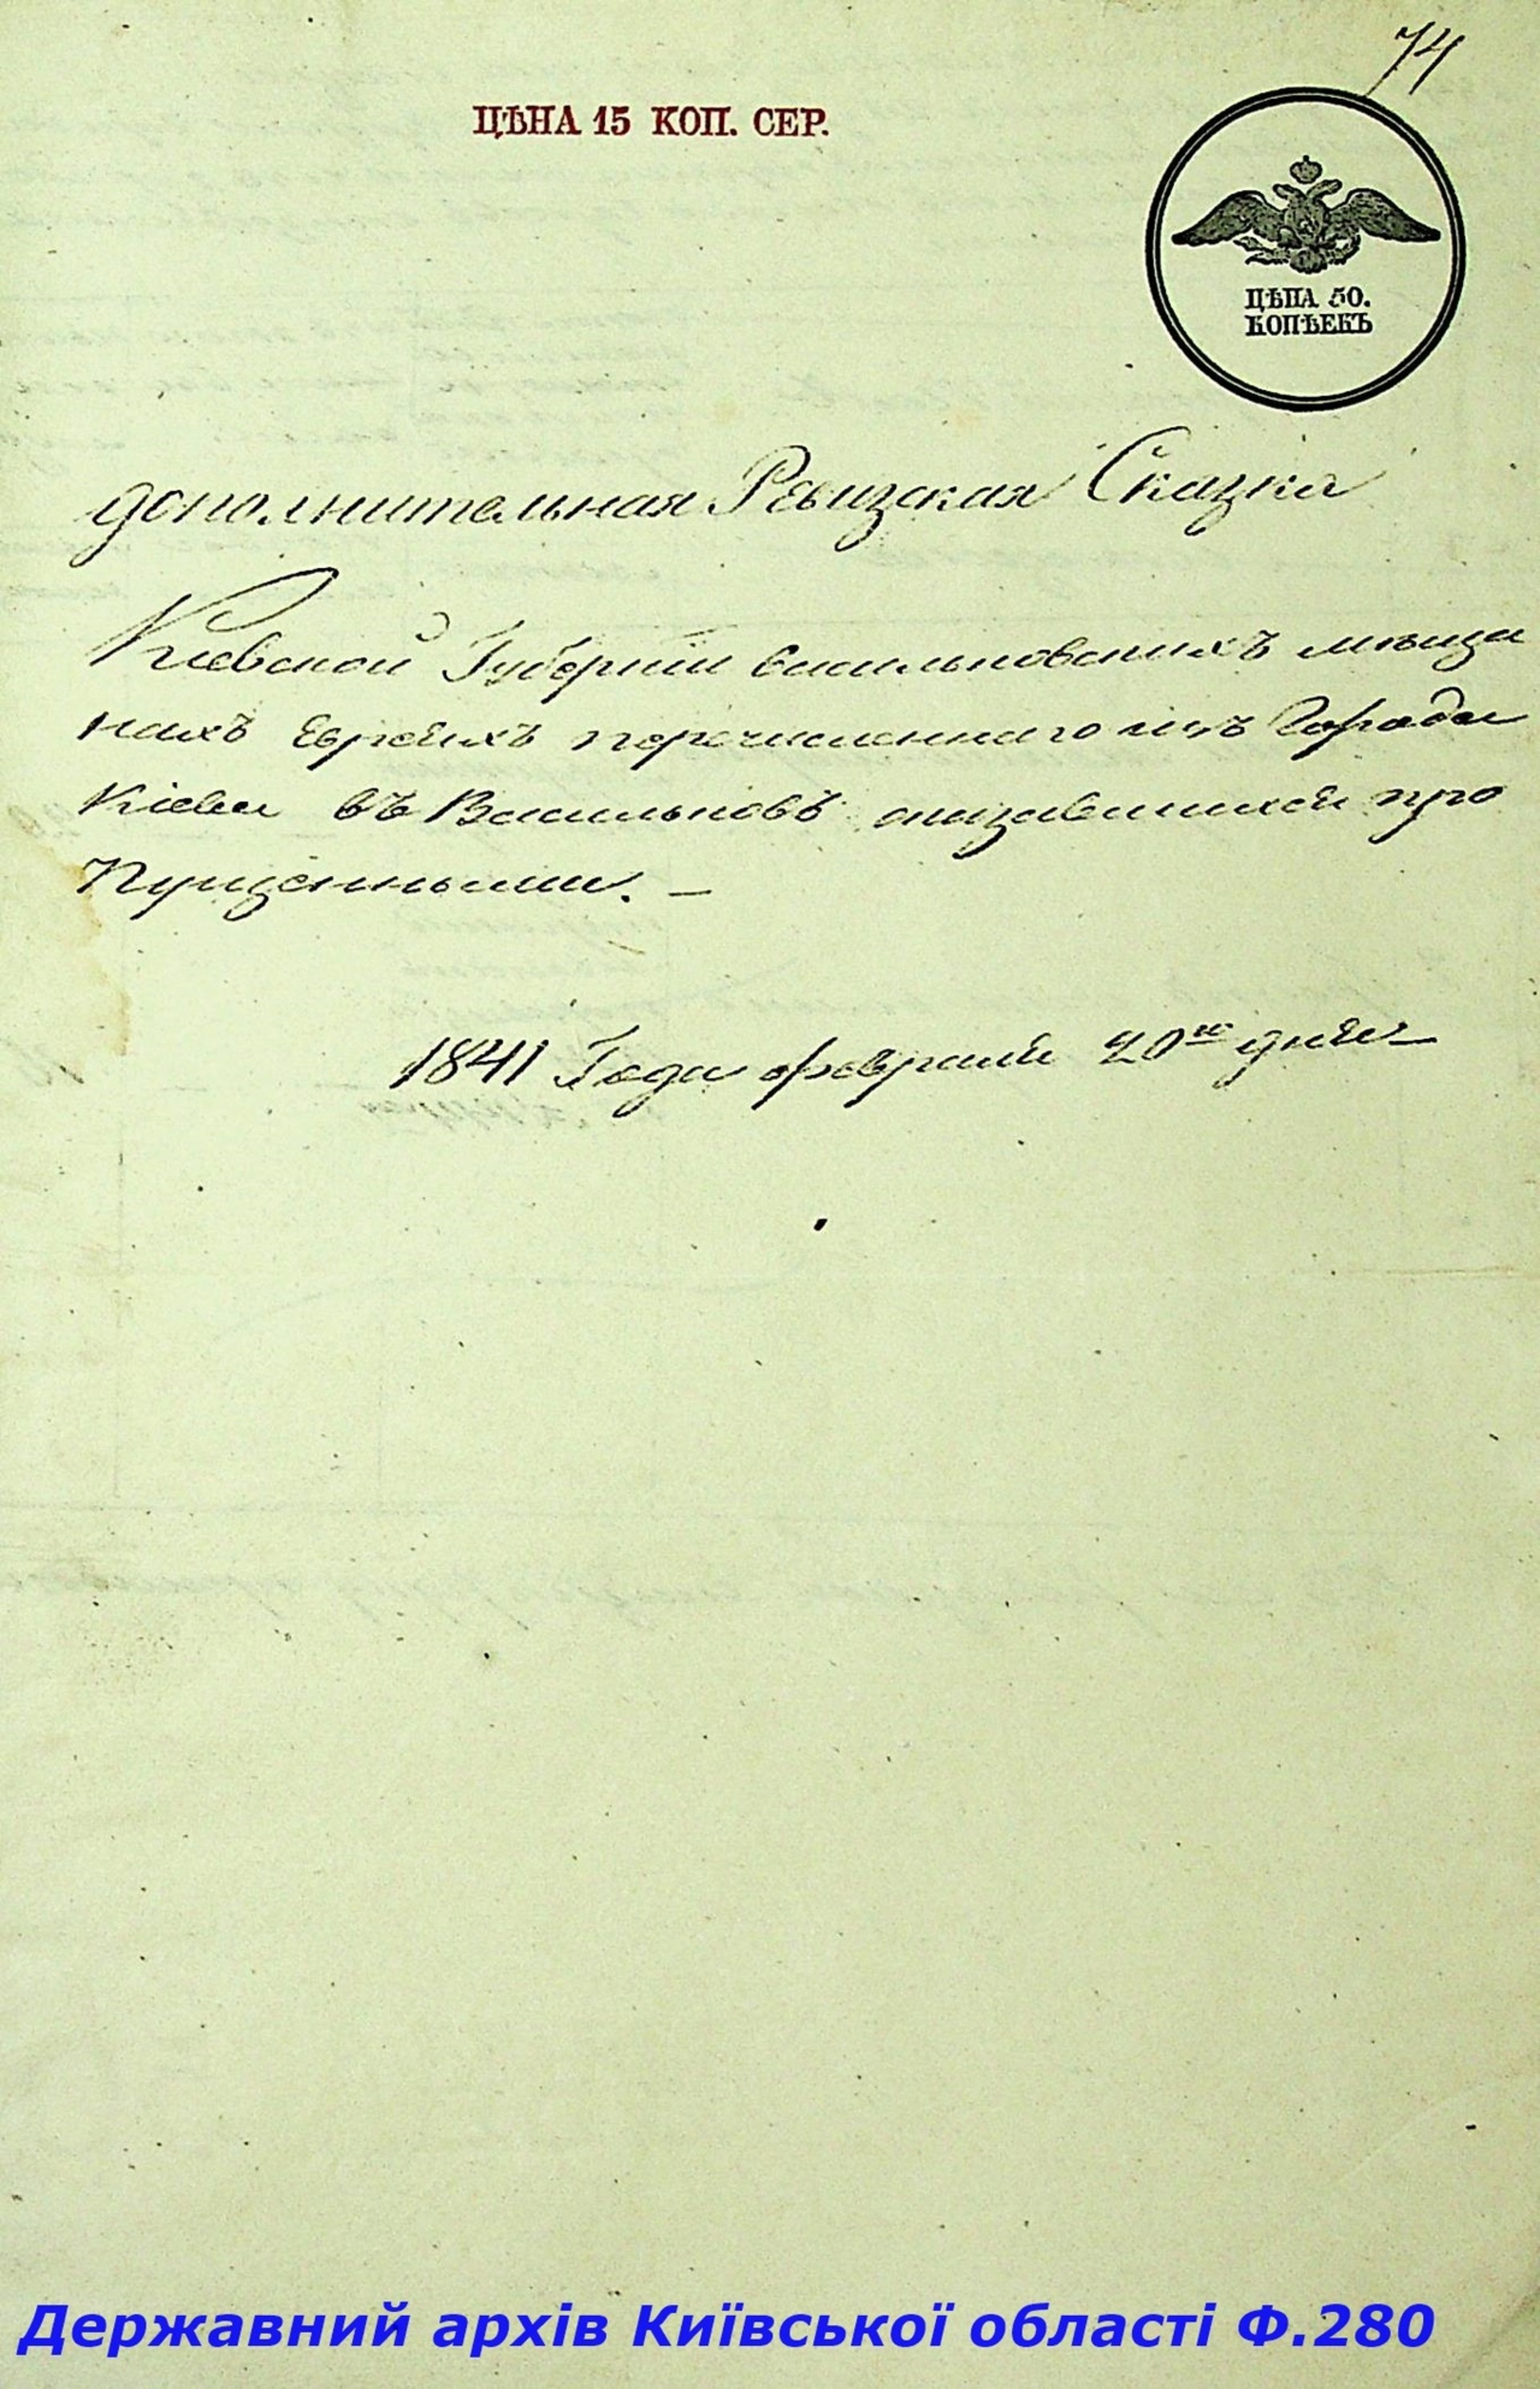 74
ЦѢНА 15 КОП. СЕР.
ЦѢНА 50.
КОПѢЕКЪ
дополнительная Ревизская Сказка
Кіевской Губерніи васильковскихъ мѣща
нахъ евреяхъ перечисленнаго изъ Города
Кіева въ Васильковъ оказавшихся про
пущенными. —
1841 Года февраля 20го дня
Державний архів Київської області Ф.280